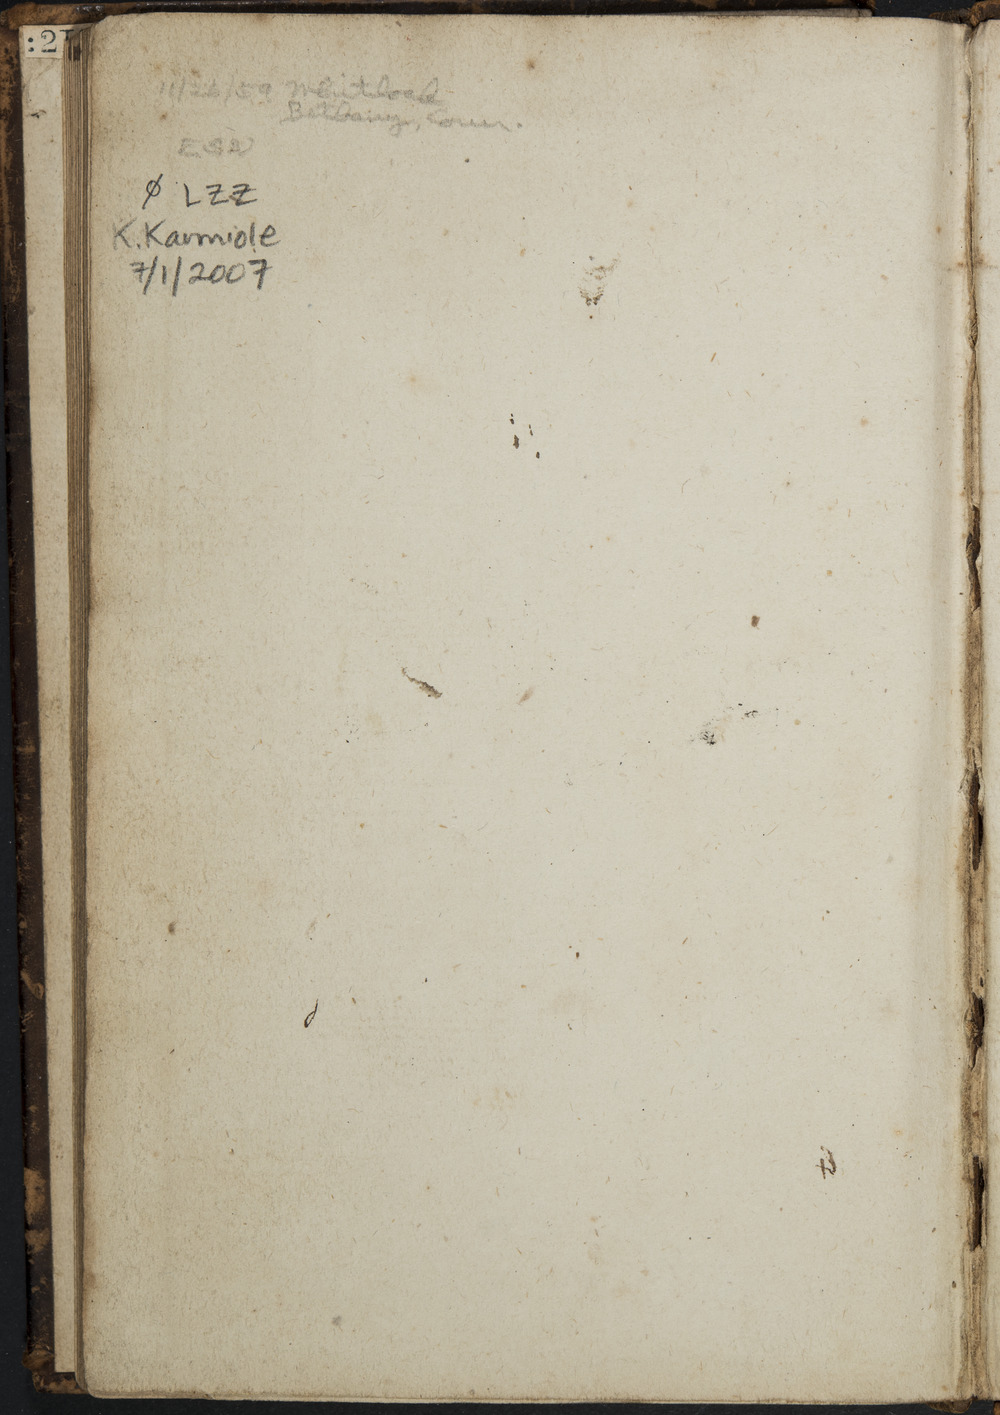 :2
11/23/59 Whitlock
Bethany, Conn.
ESW
∅ LZZ
K. Karmiole
7/1/2007